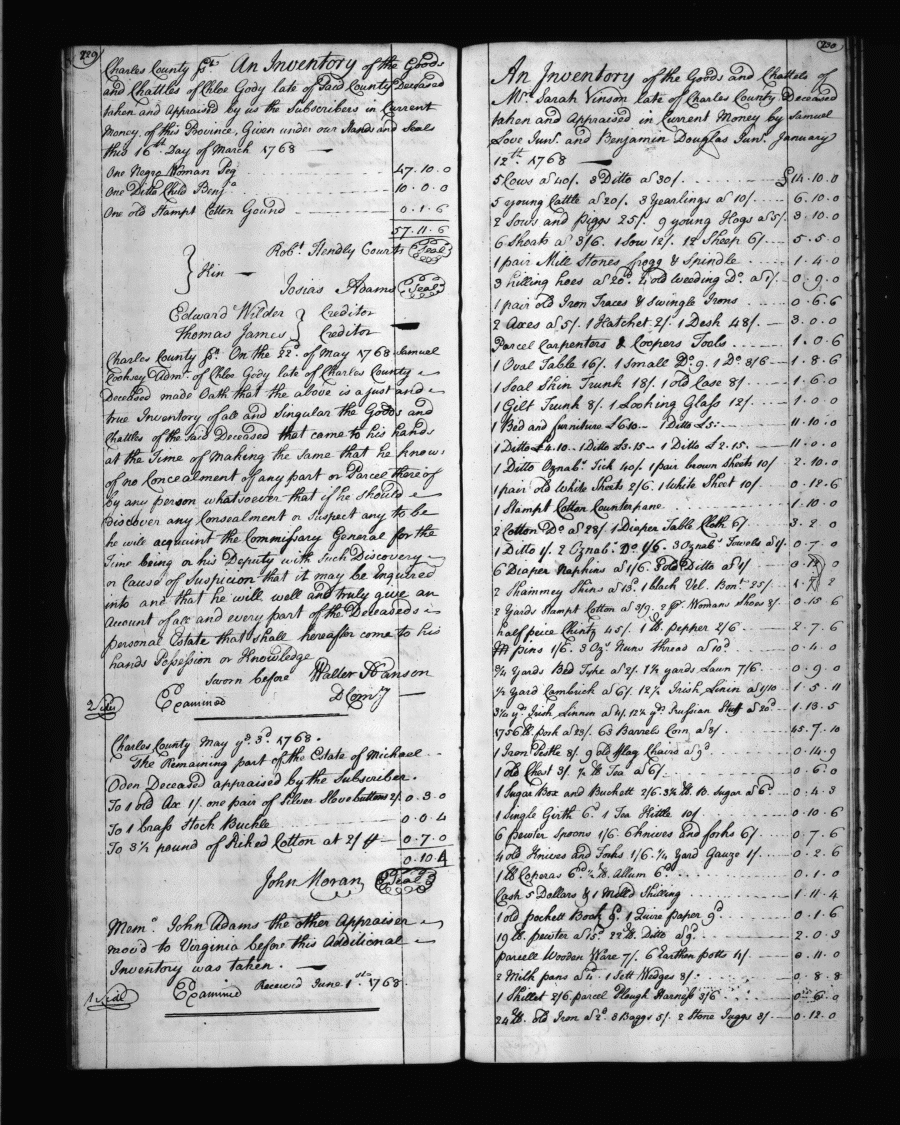 229
Charles County ss. An Inventory of the Goods
and Chattles of Chloe Gody late of said County Deceased
taken and Appraised by us the Subscribers in Current
Money, of this Province, Given under our Hands and Seals
this 16th Day of March 1768 —
One Negro Woman Peg 47.10.0
One Ditto Child Benj.a 10.0.0
One old Stampt Cotton Gound 0.1.6
57.11.6
Robt. Hendley Courts (Seal)
} Kin —
Josias Adams (Seal)
Edward Wilder } Creditor
Thomas James } Creditor —
Charles County ss. On the 22d. of May 1768 Samuel
Cooksey Admr. of Chloe Gody late of Charles County
Deceased made Oath that the above is a just and
true Inventory of all and Singular the Goods and
Chattles of the said Deceased that came to his hands
at the Time of making the Same that he knows
of no Concealment of any part or Parcel thereof
by any person whatsoever that if he should
discover any Consealment or Suspect any to be
he will acquaint the Commissary General for the
Time being or his Deputy with Such Discovery
or Cause of Suspicion that it may be Enquired
into and that he will well and truly give an
Account of all and every part of the Deceaseds
personal Estate that shall hereafter come to his
hands Possession or Knowledge
Sworn before Walter Hanson
2 sides Examined D Comry —
Charles County May ye. 3d. 1768.
The Remaining part of the Estate of Michael
Oden Deceased appraised by the Subscriber.
To 1 old Axe 1/. one pair of Silver Slevebuttons 2/. 0.3.0
To 1 brass Stock Buckle 0.0.4
To 3½ pound of Picked Cotton at 2/ 0.7.0
0.10.4
John Moran (Seal)
Memo. John Adams the other Appraiser
mov'd to Virginia before this Additional
Inventory was taken. —
1 Side Examined Received June 1st. 1768.
230
An Inventory of the Goods and Chattels of
Mrs. Sarah Vinson late of Charles County Deceased
taken and Appraised in Current Money by Samuel
Love Junr. and Benjamin Douglas Junr. January
12th. 1768 —
5 Cows a 40/. 3 Ditto a 30/. £14.10.0
5 young Cattle a 20/. 3 Yearlings a 10/. 6.10.0
2 Sows and Piggs 25/. 9 young Hogs a 5/. 3.10.0
6 Shoats a 3/6. 1 Sow 12/. 12 Sheep 6/. 5.5.0
1 pair Mill Stones frogg & Spindle 1.4.0
3 hilling hoes a 20d. 4 old weeding Do. a 1/. 0.9.0
1 pair old Iron Traces & Swingle Irons 0.6.6
2 Axes a 5/. 1 Hatchet 2/. 1 Desk 48/. 3.0.0
Parcel Carpenters & Coopers Tools 1.0.6
1 Oval Table 16/. 1 Small Do. 9. 1 Do. 3/6 1.8.6
1 Seal Skin Trunk 18/. 1 old Case 8/. 1.6.0
1 Gilt Trunk 8/. 1 Looking Glass 12/. 1.0.0
1 Bed and furniture £6.10 — 1 Ditto £5 11.10.0
1 Ditto £4.10 — 1 Ditto £3.15 — 1 Ditto £2.15. 11.0.0
1 Ditto Oznabs. Tick 40/. 1 pair brown Sheets 10/. 2.10.0
1 pair old White Sheets 2/6. 1 White Sheet 10/. 0.12.6
1 Stampt Cotton Counterpane 1.10.0
2 Cotton Do. a 28/. 1 Diaper Table Cloth 6/. 3.2.0
1 Ditto 1/. 2 Oznabs. Do. 1/6. 3 Oznabs. Towels a 1/. 0.7.0
6 Diaper Napkins a 1/6. 8 old Ditto a 1/
2 Shammey Skins a 13d. 1 black Vel. Bont. 25/.
2 Yards Stampt Cotton a 3/9. 2 pr. Womans Shoes 8/. 0.15.6
half peice Chintz 45/. 1 lb. Pepper 2/6. 2.7.6
pins 1/6. 3 Ozs. Nuns thread a 10d. 0.4.0
¾ Yards Bed Type a 2/. 1¼ yards Lawn 7/6. 0.9.0
½ Yard Cambrick a 6/. 12¼ Irish Linen a 1/10 1.5.11
3 yds. Irish Linnen a 4/. 12¼ yds. Prussian Stuff a 20d. 1.13.5
1756 lb. pork a 23/. 63 Barrels Corn, a 8/. 45.7.10
1 Iron Pestle 8/. 9 old flag Chairs a 9d. 0.14.9
1 old Chest 3/. ½ lb Tea a 6/. 0.6.0
1 Sugar Box and Buckett 2/6. 3½ lb. B. Sugar a 6d. 0.4.3
1 Single Girth 6d. 1 Tea Kittle 10/ 0.10.6
6 Pewter Spoons 1/6. 6 knives and forks 6/. 0.7.6
4 old Knives and Forks 1/6. ¼ Yard Gauze 1/. 0.2.6
1 lb Coperas 6d ½ lb. Allum 6d. 0.1.0
Cash 5 Dollars & 1 Mill'd Shilling 1.11.4
1 old pockett Book 9d. 1 Quire paper 9d. 0.1.6
19 lb. pewter a 15d. 22 lb. Ditto a 9d. 2.0.3
parcell Wooden Ware 7/. 6 Earthen potts 4/. 0.11.0
2 Milk pans a 4d. 1 Sett Wedges 8/. 0.8.8
1 Skillet 2/6. parcel Plough Harness 3/6 0.6.0
24 lb. old Iron a 2d. 3 Baggs 5/. 2 Stone Juggs 3/. 0.12.0